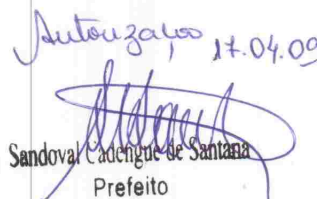 Autorização 17.04.09
Sandoval Cadengue de Santana
Prefeito